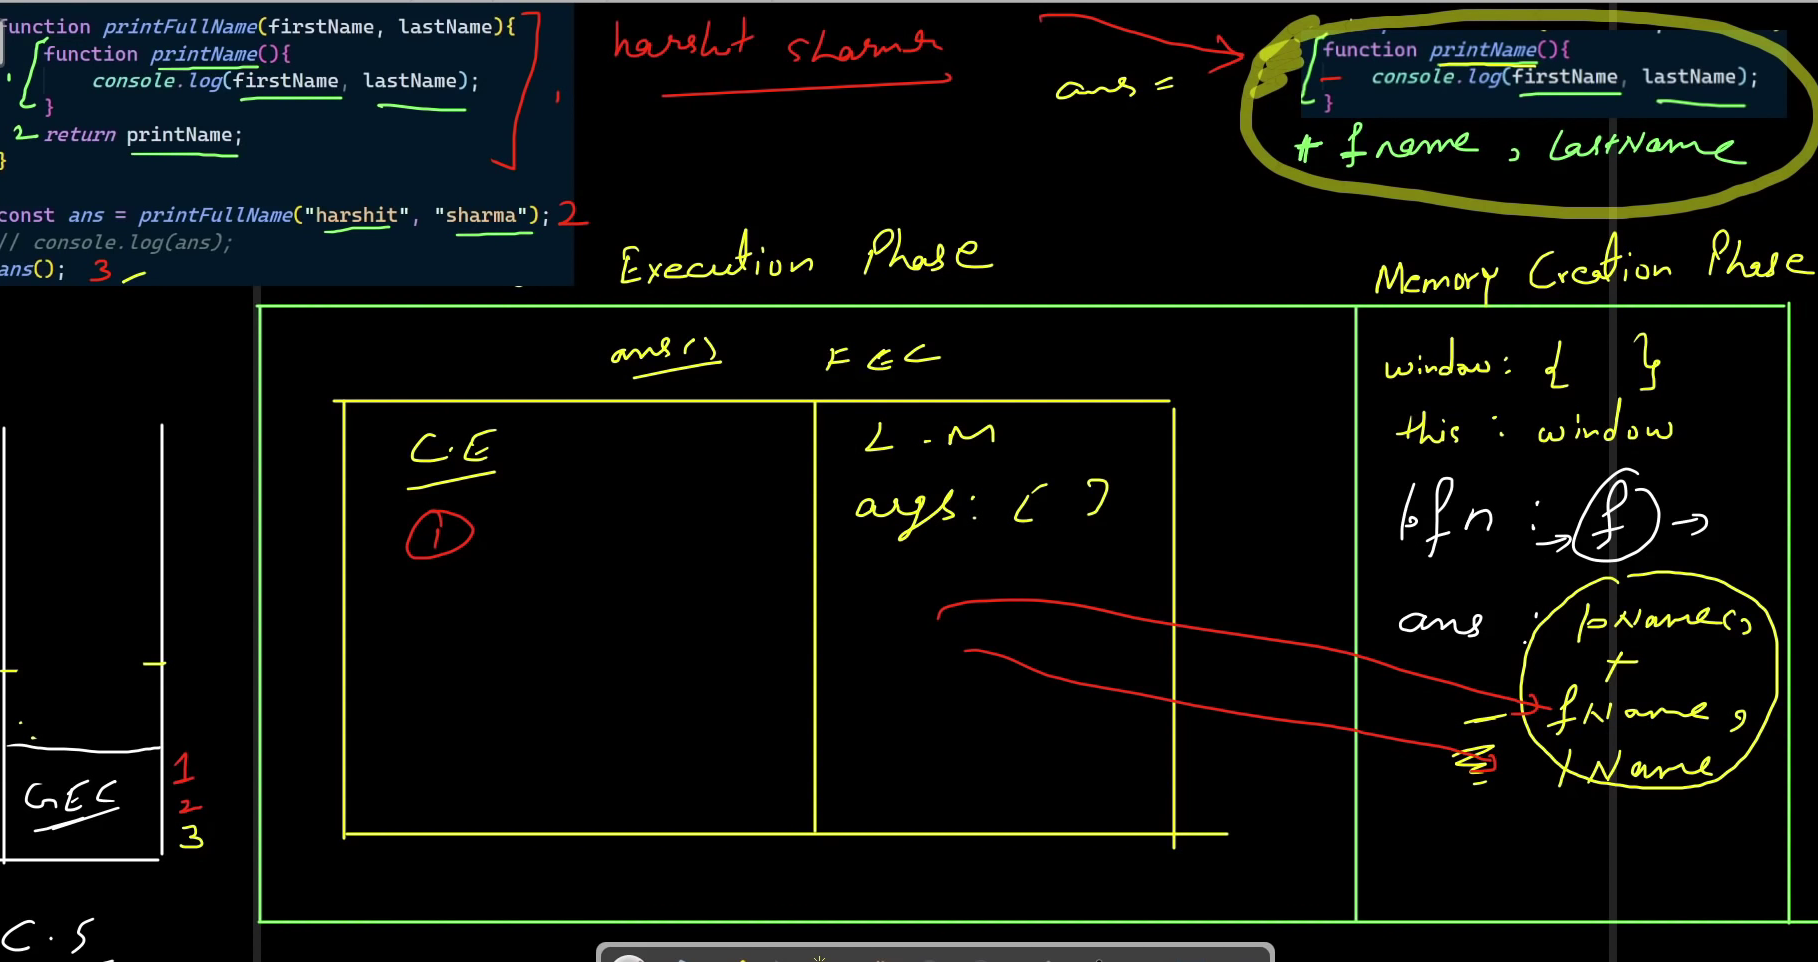 function printFullName(firstName, lastName){
function printName(){
console.log(firstName, lastName);
}
2 return printName;
}
const ans = printFullName("harshit", "sharma"); 2
// console.log(ans);
ans(); 3
1
harshit sharma
ans =
function printName(){
console.log(firstName, lastName);
}
+ fname, lastName
Execution Phase
Memory Creation Phase
ans() FEC
C.E
1
L.M
args: [ ]
window: { }
this : window
pfn : f →
ans : pName()
+
fName,
lName
GEC
1
2
3
C.S